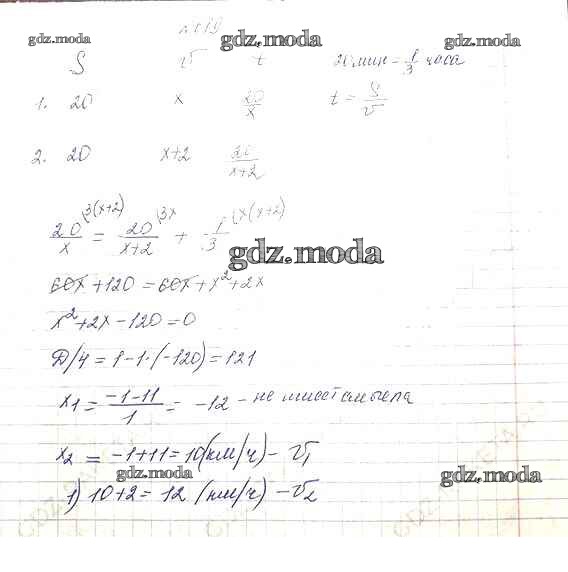 gdz.moda gdz.moda
S v t 20 мин – 1/3 часа
1. 20 x 20/x t = S/v
2. 20 x+2 20/(x+2)
20/x \3(x+2) = 20/(x+2) \3x + 1/3 \x(x+2)
gdz.moda
60x + 120 = 60x + x² + 2x
x² + 2x – 120 = 0
Д/4 = 1 – 1·(–120) = 121
x1 = (–1–11)/1 = –12 – не имеет смысла
x2 = –1+11 = 10 (км/ч) – v1
gdz.moda gdz.moda
1) 10+2 = 12 (км/ч) – v2